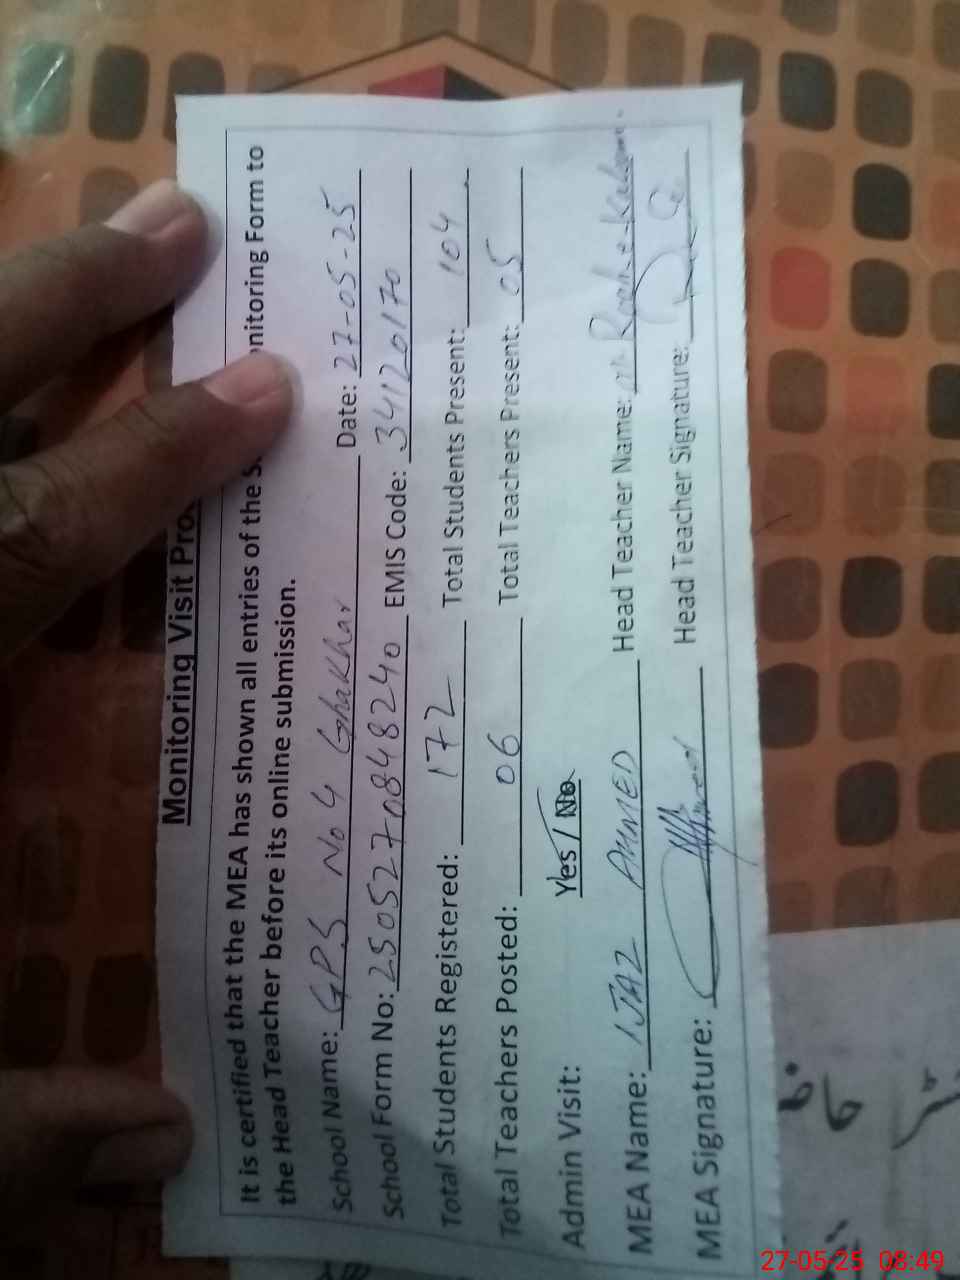 Monitoring Visit
It is certified that the MEA has shown all entries of the Monitoring Form to
the Head Teacher before its online submission.
School Name: GPS No 4 Ghakhar Date: 27-05-25
School Form No: 250527084848240 EMIS Code: 34120170
Total Students Registered: 172 Total Students Present: 104
Total Teachers Posted: 06 Total Teachers Present: 05
Admin Visit: Yes / No
MEA Name: IJAZ AHMED Head Teacher Name:
MEA Signature: Head Teacher Signature:
27-05-25 08:49